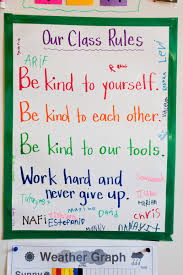 Our Class Rules
ARIF
Be kind to yourself.
Be kind to each other.
Be kind to our tools.
Work hard and
never give up.
NAFI
Estefania
chris
Weather Graph
Sunny